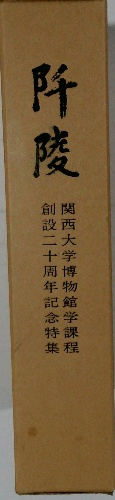 阡陵
関西大学博物館学課程
創設二十周年記念特集